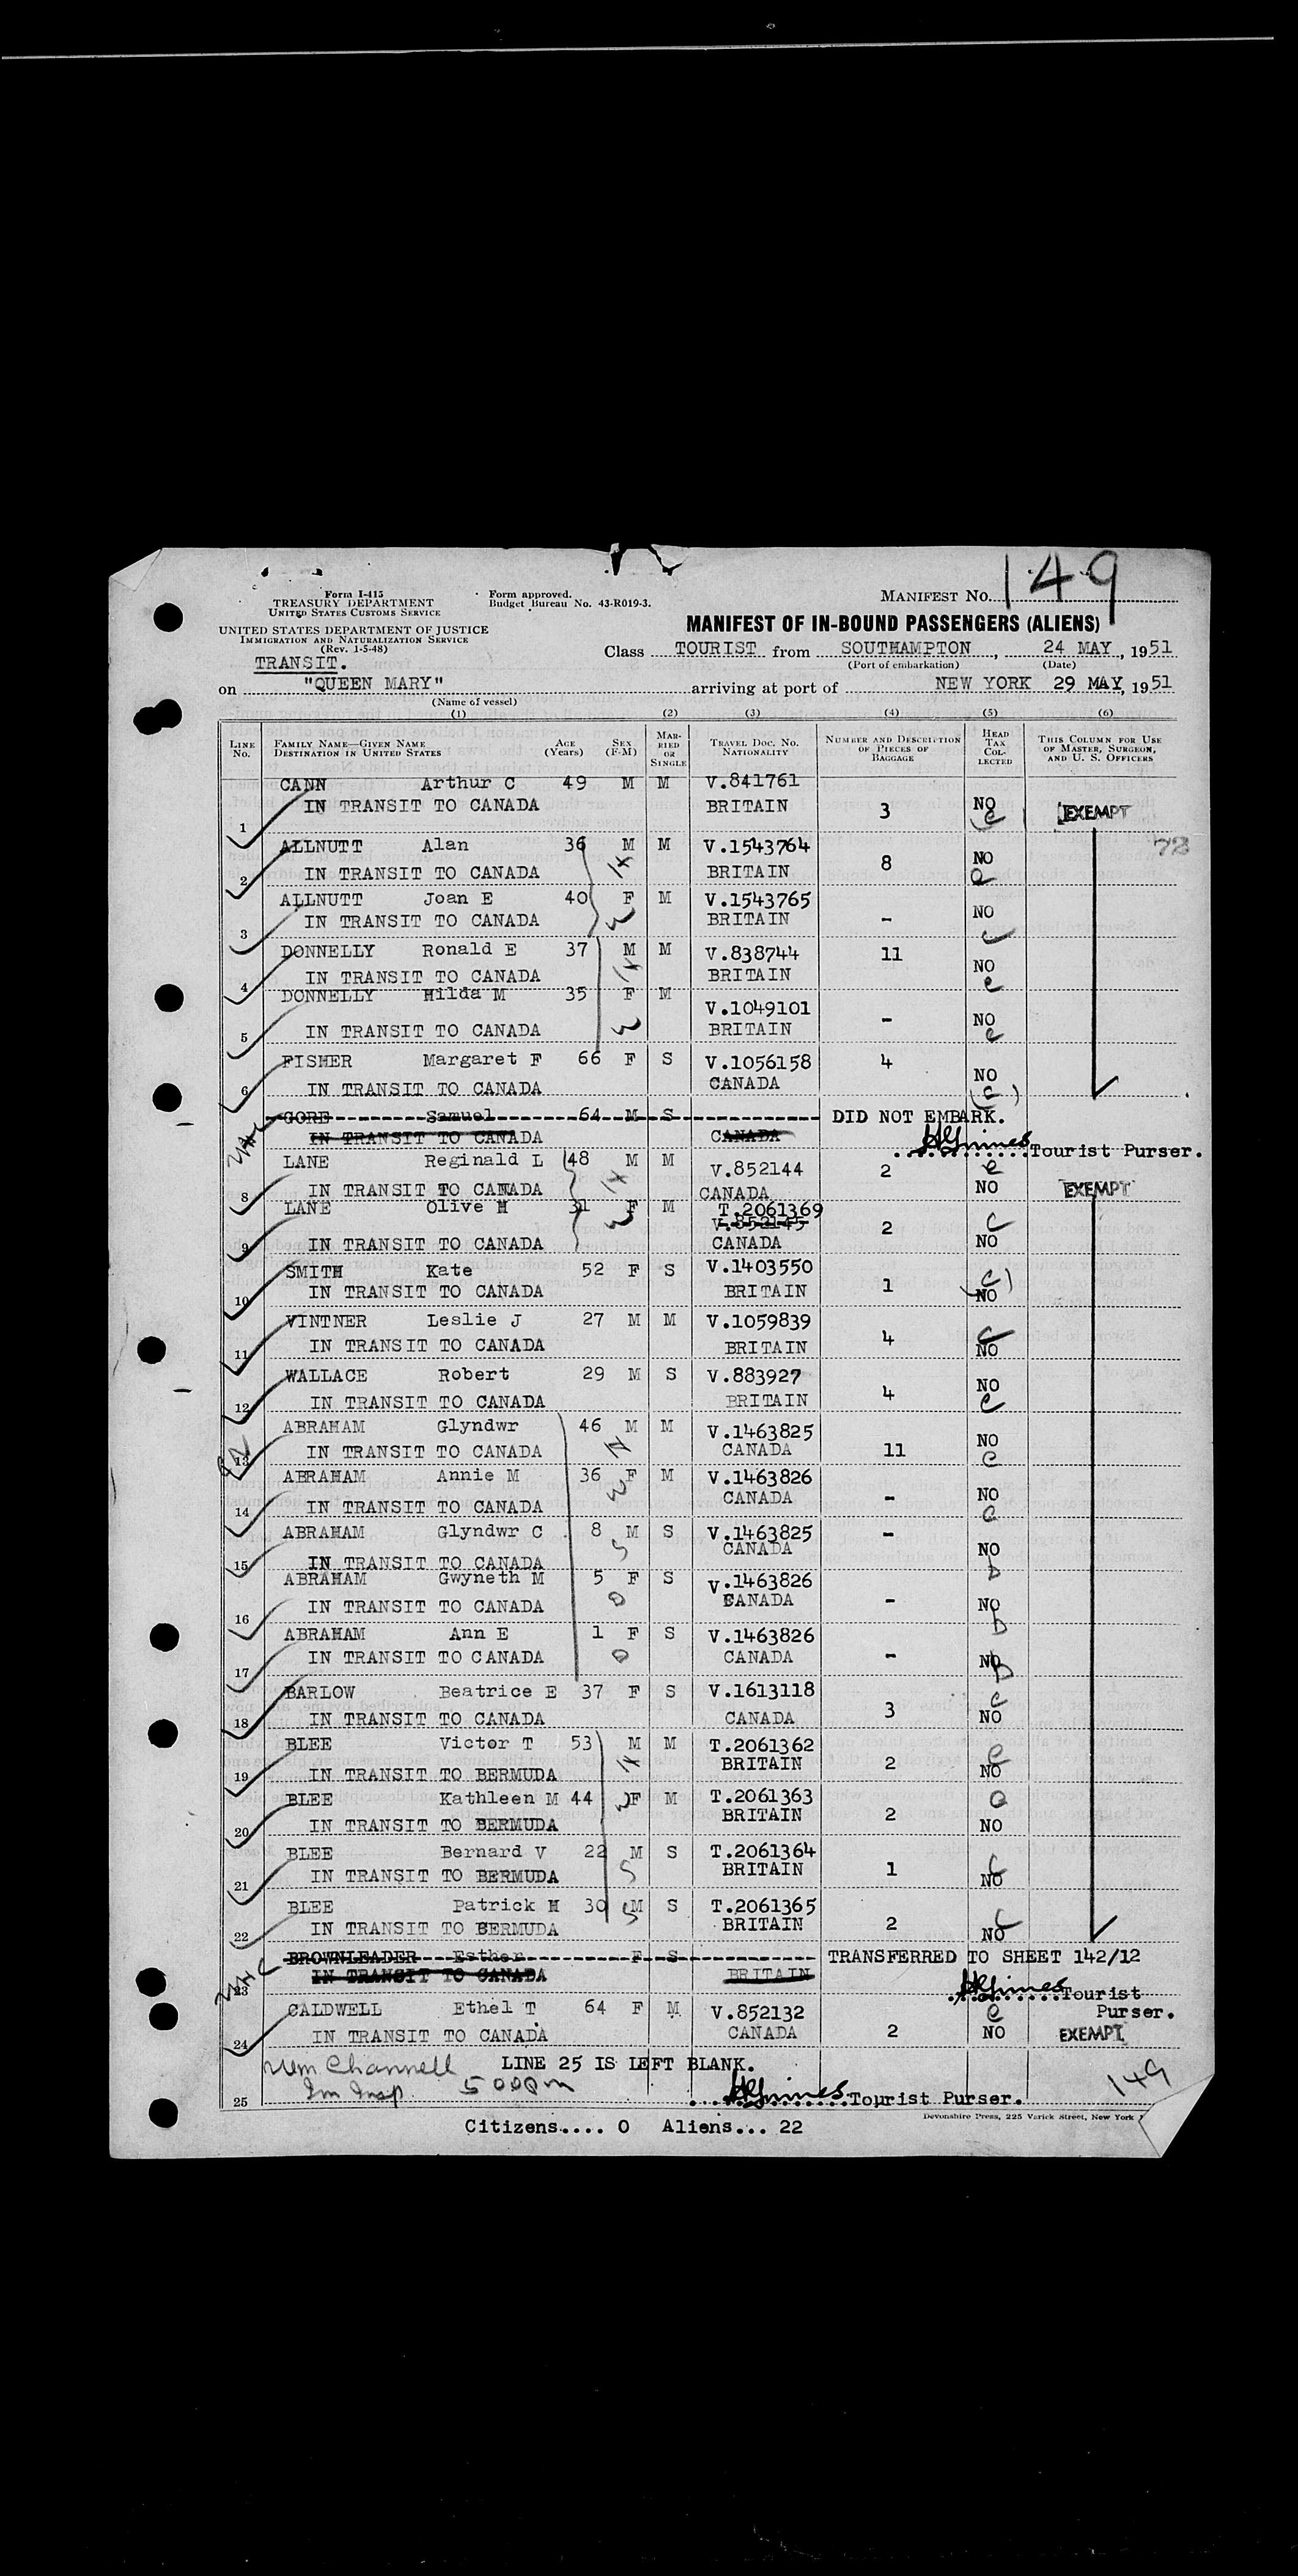 149
Form I-415
TREASURY DEPARTMENT
UNITED STATES CUSTOMS SERVICE
Form approved.
Budget Bureau No. 43-R019-3.
MANIFEST NO.
UNITED STATES DEPARTMENT OF JUSTICE
IMMIGRATION AND NATURALIZATION SERVICE
(Rev. 1-5-48)
MANIFEST OF IN-BOUND PASSENGERS (ALIENS)
TRANSIT.
Class TOURIST from SOUTHAMPTON, 24 MAY, 1951
(Port of embarkation) (Date)
on "QUEEN MARY" arriving at port of NEW YORK 29 MAY, 1951
(Name of vessel)
(1) (2) (3) (4) (5) (6)
LINE NO. FAMILY NAME—GIVEN NAME DESTINATION IN UNITED STATES AGE (Years) SEX (F-M) MARRIED OR SINGLE TRAVEL DOC. NO. NATIONALITY NUMBER AND DESCRIPTION OF PIECES OF BAGGAGE HEAD TAX COLLECTED THIS COLUMN FOR USE OF MASTER, SURGEON, AND U. S. OFFICERS
CANN Arthur C 49 M M V.841761
1 IN TRANSIT TO CANADA BRITAIN 3 NO EXEMPT
ALLNUTT Alan 36 M M V.1543764 72
2 IN TRANSIT TO CANADA BRITAIN 8 NO
ALLNUTT Joan E 40 F M V.1543765
3 IN TRANSIT TO CANADA BRITAIN - NO
DONNELLY Ronald E 37 M M V.838744 11
4 IN TRANSIT TO CANADA BRITAIN NO
DONNELLY Hilda M 35 F M V.1049101
5 IN TRANSIT TO CANADA BRITAIN - NO
FISHER Margaret F 66 F S V.1056158 4
6 IN TRANSIT TO CANADA CANADA NO
GORE Samuel 64 M S DID NOT EMBARK.
IN TRANSIT TO CANADA CANADA
Tourist Purser.
LANE Reginald L 48 M M V.852144 2
8 IN TRANSIT TO CANADA CANADA NO EXEMPT
LANE Olive H 31 F M T.2061369
V.852145 2
9 IN TRANSIT TO CANADA CANADA NO
SMITH Kate 52 F S V.1403550
10 IN TRANSIT TO CANADA BRITAIN 1 NO
VINTNER Leslie J 27 M M V.1059839
11 IN TRANSIT TO CANADA BRITAIN 4 NO
WALLACE Robert 29 M S V.883927
12 IN TRANSIT TO CANADA BRITAIN 4 NO
ABRAHAM Glyndwr 46 M M V.1463825
13 IN TRANSIT TO CANADA CANADA 11 NO
ABRAHAM Annie M 36 F M V.1463826
14 IN TRANSIT TO CANADA CANADA - NO
ABRAHAM Glyndwr C 8 M S V.1463825 -
15 IN TRANSIT TO CANADA CANADA NO
ABRAHAM Gwyneth M 5 F S V.1463826
16 IN TRANSIT TO CANADA CANADA - NO
ABRAHAM Ann E 1 F S V.1463826
17 IN TRANSIT TO CANADA CANADA - NO
BARLOW Beatrice E 37 F S V.1613118
18 IN TRANSIT TO CANADA CANADA 3 NO
BLEE Victor T 53 M M T.2061362
19 IN TRANSIT TO BERMUDA BRITAIN 2 NO
BLEE Kathleen M 44 F M T.2061363
20 IN TRANSIT TO BERMUDA BRITAIN 2 NO
BLEE Bernard V 22 M S T.2061364
21 IN TRANSIT TO BERMUDA BRITAIN 1 NO
BLEE Patrick H 30 M S T.2061365
22 IN TRANSIT TO BERMUDA BRITAIN 2 NO
BROWNLEADER Esther F S TRANSFERRED TO SHEET 142/12
23 IN TRANSIT TO CANADA BRITAIN
Tourist Purser.
CALDWELL Ethel T 64 F M V.852132
24 IN TRANSIT TO CANADA CANADA 2 NO EXEMPT
Wm Channell LINE 25 IS LEFT BLANK.
Im Insp 149
25 Tourist Purser.
Devonshire Press, 225 Varick Street, New York
Citizens.... 0 Aliens... 22